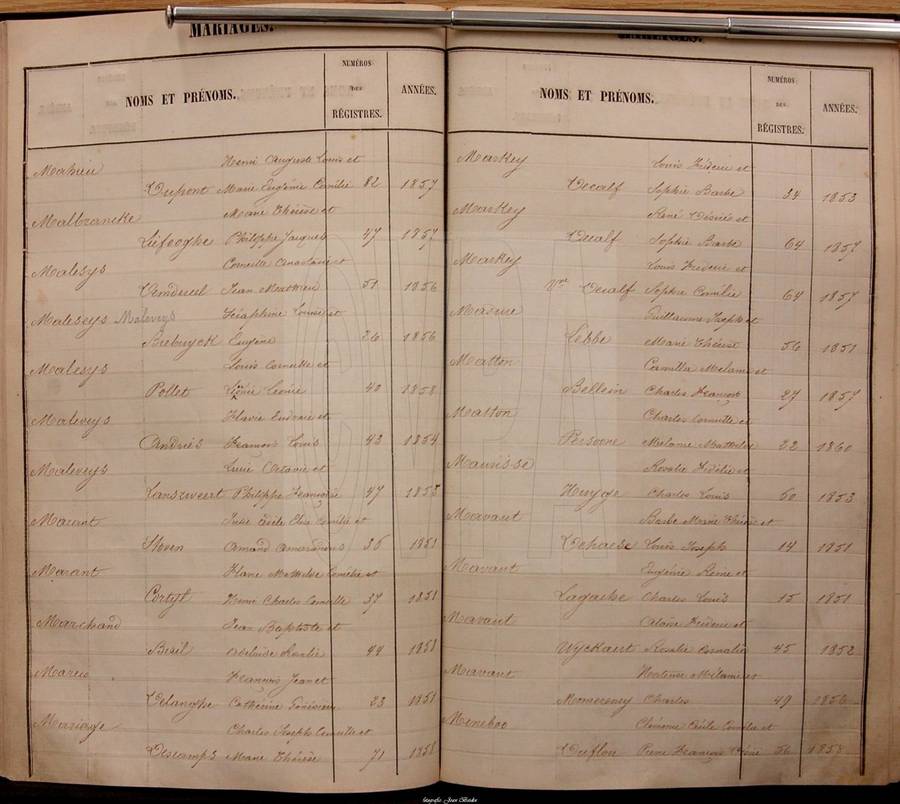 MARIAGES.
NOMS ET PRÉNOMS.
NUMÉROS
DES
RÉGISTRES.
ANNÉES.
Mahieu Henri Auguste Louis et
Dupont Marie Eugénie Camilie 82 1857
Malbrancke Marie Thérèse et
Liefooghe Philippe Jacques 47 1857
Malesys Corneille Anastasie et
Jean Mathieu 51 1856
Maleseys Maleveys Séraphine Louise et
Brebuyck Eugène 26 1856
Malesys Louis Corneille et
Pollet Léonie 40 1858
Maleveys Flavie Eudoxie et
Andries François Louis 43 1854
Maleveys Lucie Octavie et
Lansweert Philippe François 47 1853
Julie Cécile Elise Camilie et
Hoven Amand 36 1851
Marant Mathilde et
Cortyl Henri Charles Corneille 37 1851
Marchand Jean Baptiste et
Adelaide 44 1851
François Jean et
Delanghe Catherine 23 1851
Mariage Charles Joseph Corneille et
Descamps Marie Thérèse 71 1858
MARIAGES.
NOMS ET PRÉNOMS.
NUMÉROS
DES
RÉGISTRES.
ANNÉES.
Maskey Louis Fréderic et
Decalf Sophie Barbe 34 1853
Maskey René Désiré et
Decalf Sophie Barbe 64 1857
Maskey Louis Fréderic et
Decalf Sophie Camilie 64 1857
Masure Guillaume Joseph et
Lebbe Marie Thérèse 56 1851
Matton Camilla Melanie et
Bellein Charles François 27 1857
Matton Charles Corneille et
Persone Mélanie Mathilde 22 1860
Maurisse Rosalie Fidélie et
Huyge Charles Louis 60 1853
Mavaut Barbe Marie Thérèse et
Dehaese Louis Joseph 14 1851
Mavaut Eugénie Reine et
Lagache Charles Louis 15 1851
Mavaut Fréderic et
Wyckaert Rosalie Amalie 45 1852
Mavaut Hortense Mélanie et
Charles 49 1856
Meneboo Cécile et
Duflou François 1858